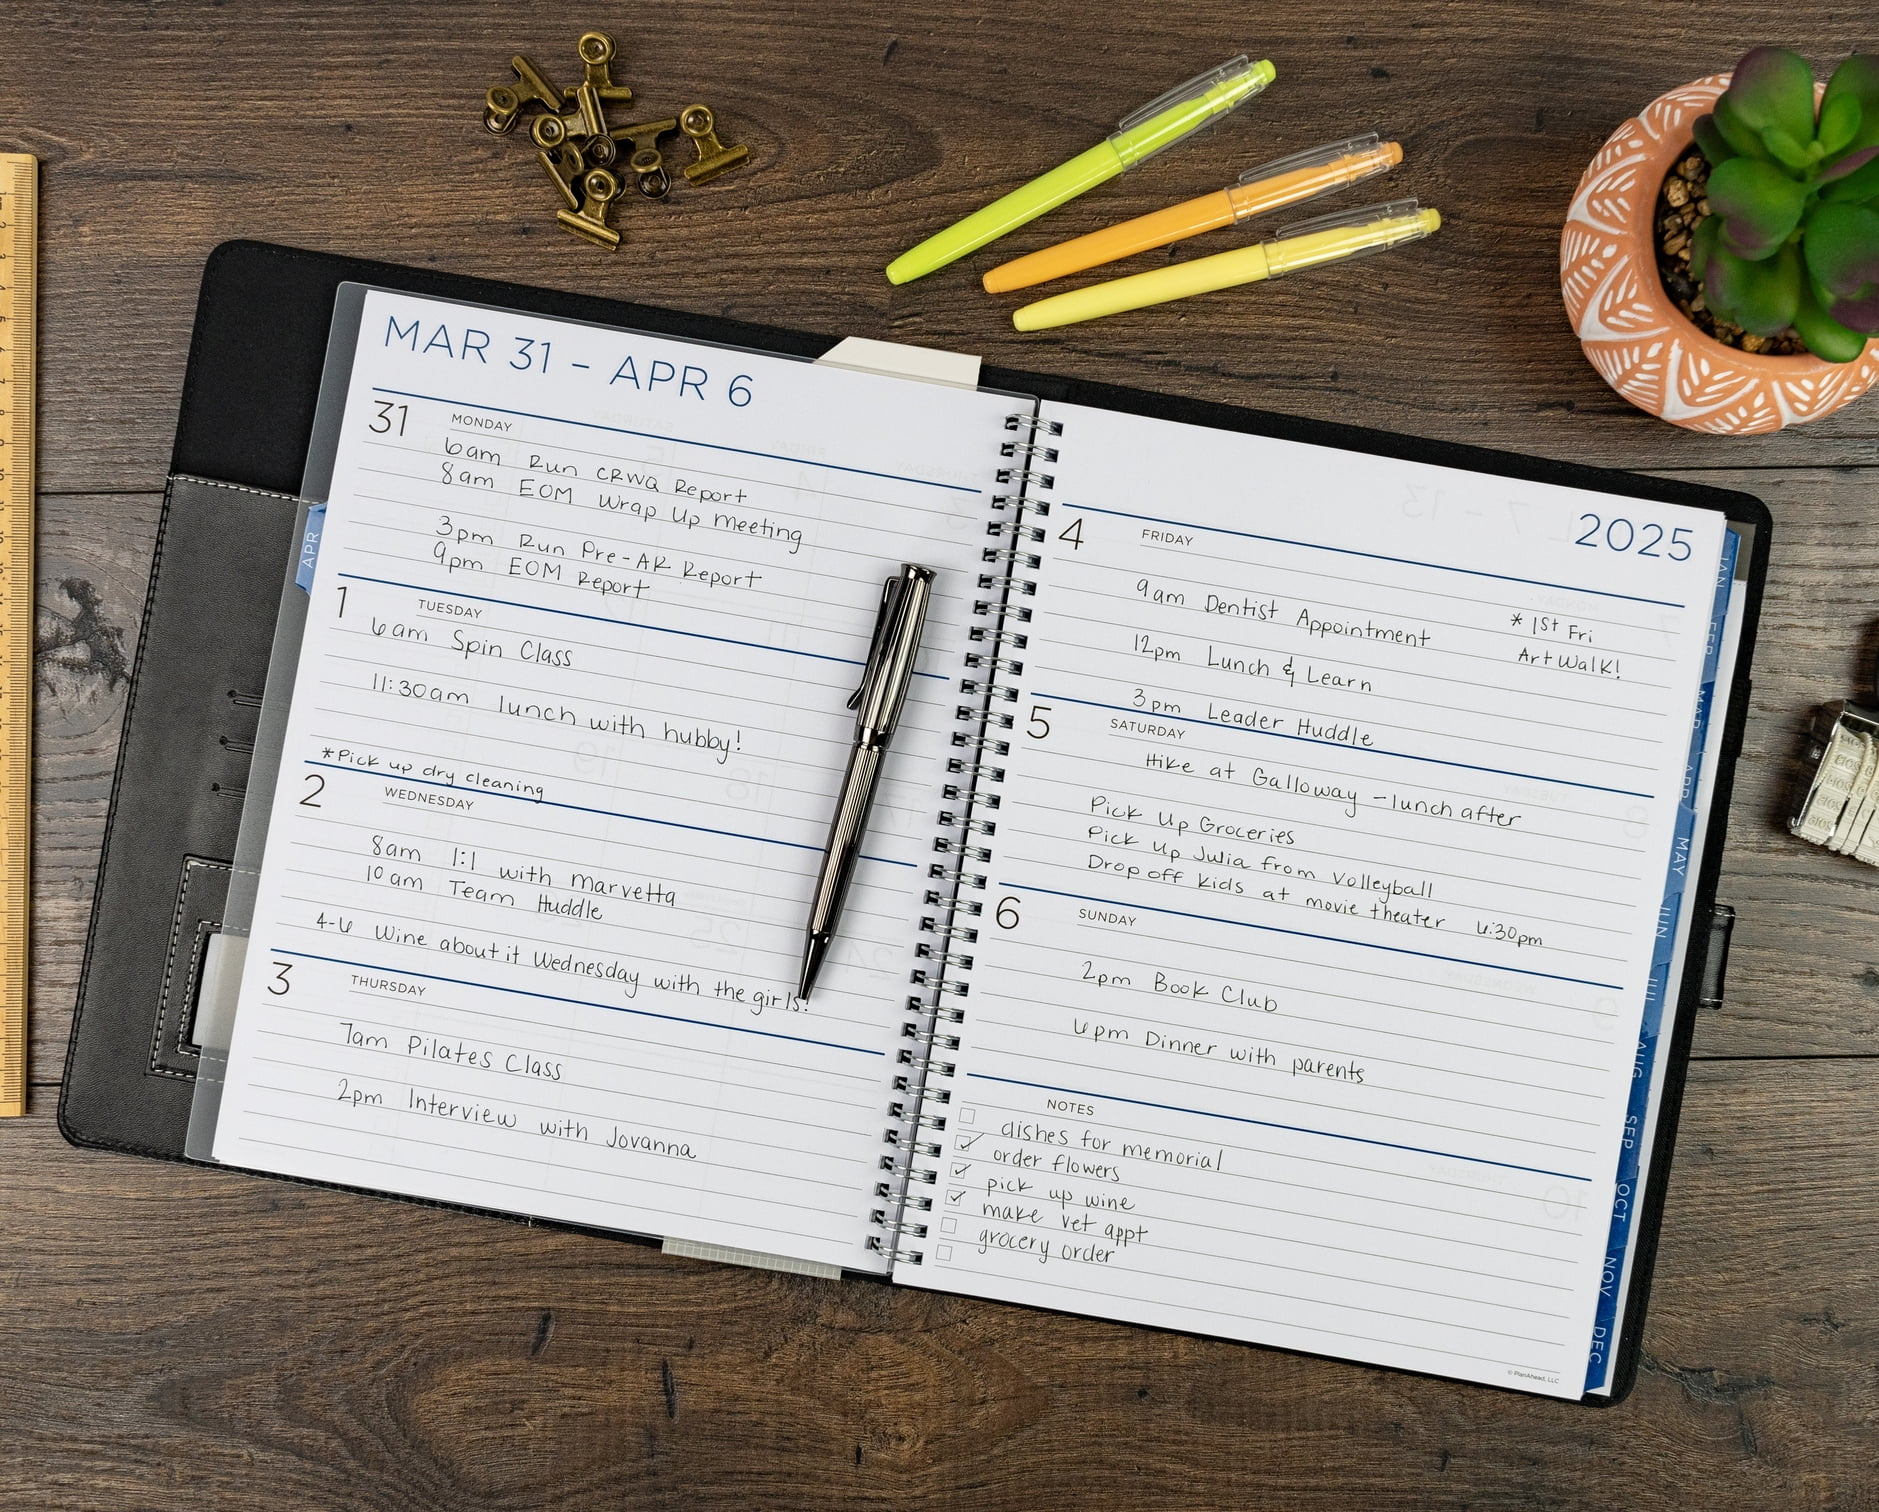 MAR 31 - APR 6
31 MONDAY
6am Run CRWQ Report
8am EOM Wrap Up meeting
3pm Run Pre-AR Report
9pm EOM Report
1 TUESDAY
6am Spin Class
11:30am lunch with hubby!
*Pick up dry cleaning
2 WEDNESDAY
8am 1:1 with marvetta
10am Team Huddle
4-6 Wine about it Wednesday with the girls!
3 THURSDAY
7am Pilates Class
2pm Interview with Jovanna
APR
2025
4 FRIDAY
9am Dentist Appointment
*1st Fri
Art Walk!
12pm Lunch & Learn
3pm Leader Huddle
5 SATURDAY
Hike at Galloway - lunch after
Pick Up Groceries
Pick Up Julia from Volleyball
Drop off kids at movie theater 6:30pm
6 SUNDAY
2pm Book Club
6pm Dinner with parents
NOTES
dishes for memorial
order flowers
pick up wine
make vet appt
grocery order
© PlanAhead, LLC
JAN
FEB
MAR
APR
MAY
JUN
JUL
AUG
SEP
OCT
NOV
DEC